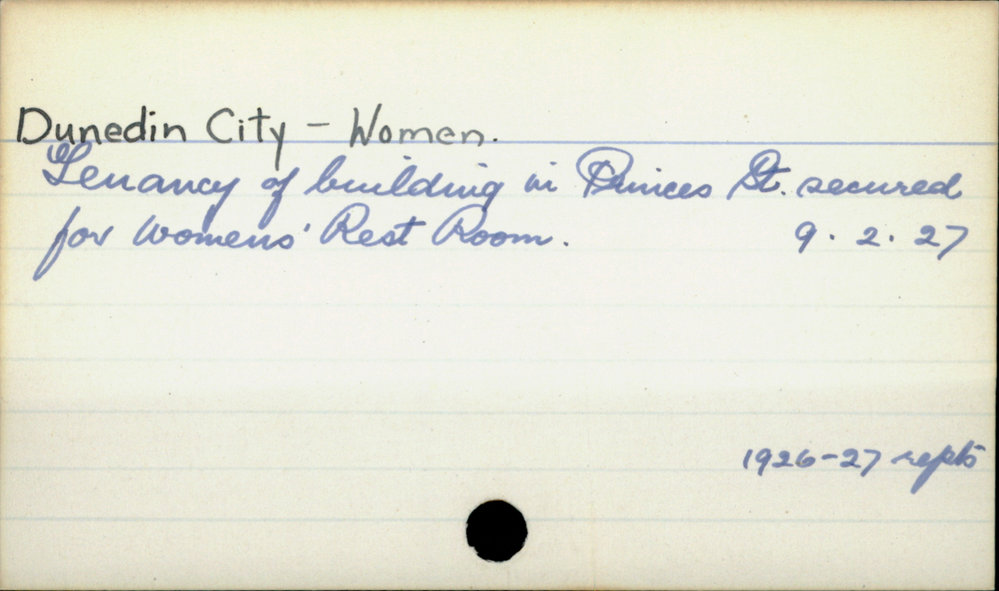 Dunedin City - Women.
Tenancy of building in Princes St. secured
for Womens' Rest Room. 9. 2. 27
1926-27 repts